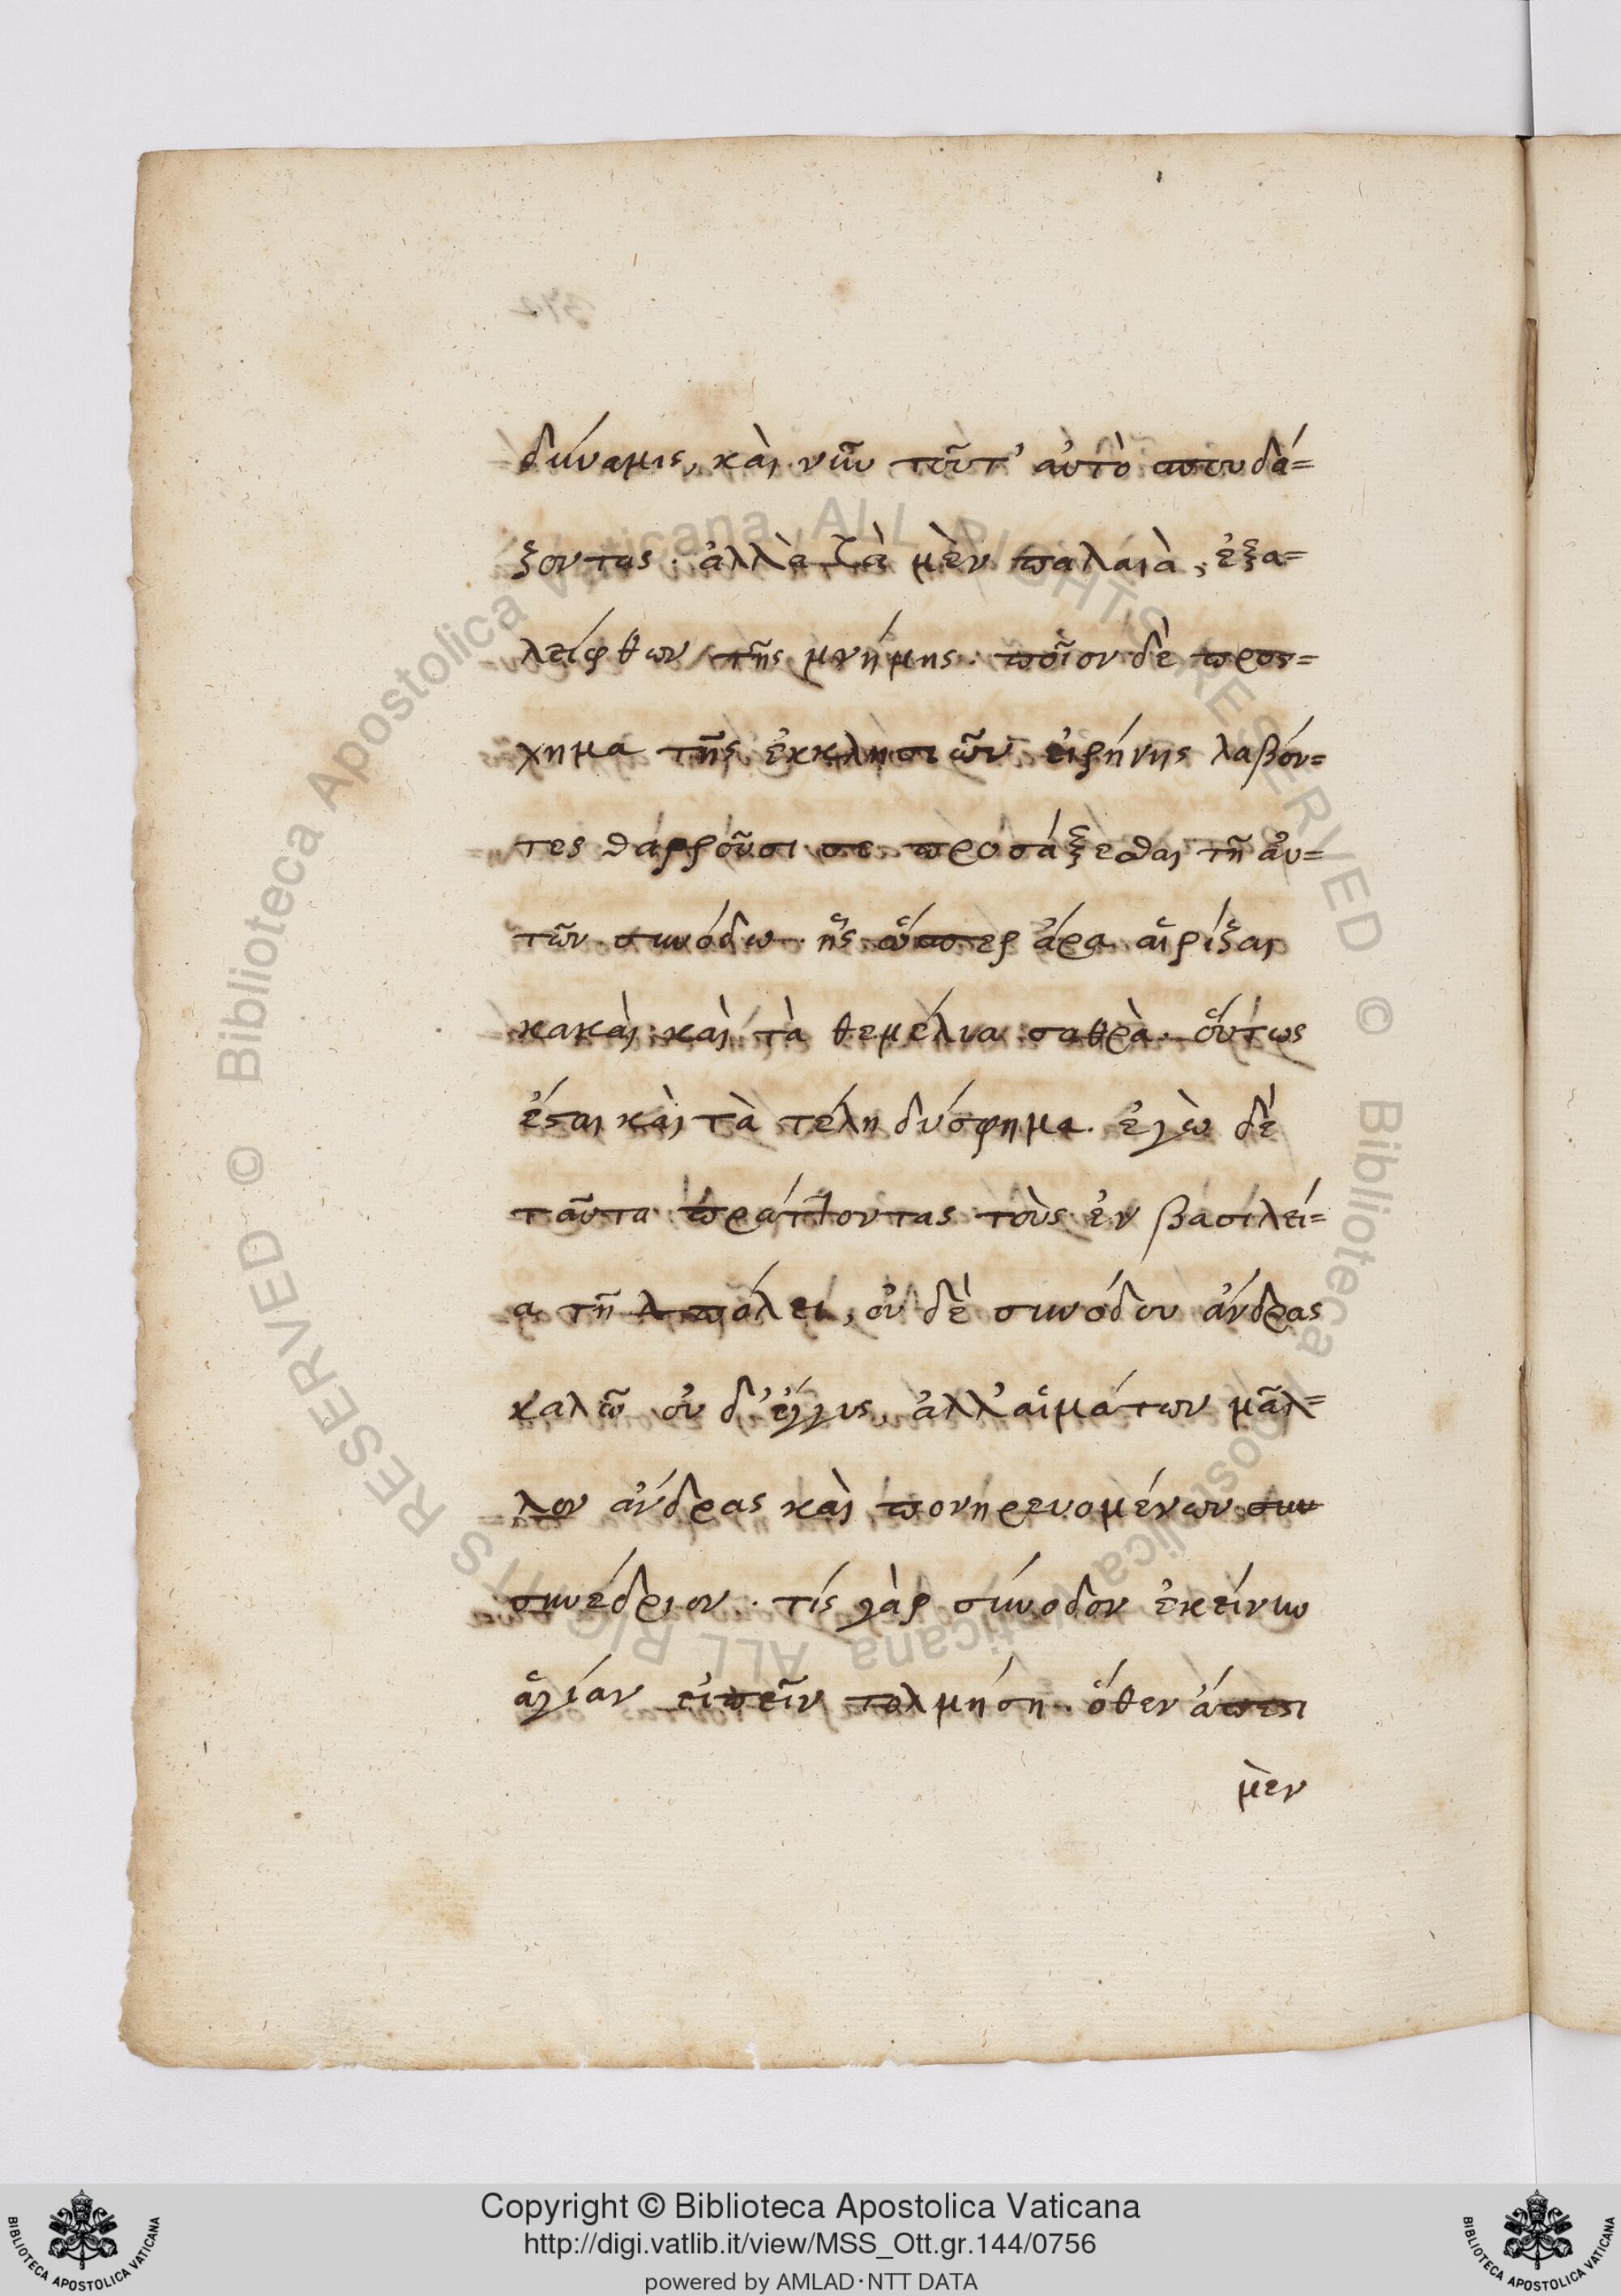 δύναμις, καὶ νῦν τοῦτ' αὐτὸ σπουδά=
ξοντας. ἀλλὰ τὰ μὲν παλαιὰ, ἐξα=
λείφθων τῆς μνήμης. ποῖον δὲ προς=
χημα τῆς ἐκκλησιῶν εἰρήνης λαβόν=
τες θαρροῦσι σε προσάξεσθαι τῇ αὐ=
τῶν συνόδω. ἧς ὥσπερ ἄρα αἱ ρίξαι
κακαὶ καὶ τὰ θεμέλια σαθρὰ. οὕτως
ἔσαι καὶ τὰ τέλη δύσφημα. ἐγὼ δὲ
ταῦτα πράττοντας τοὺς ἐν βασιλεί=
α τῇ πόλει, οὐ δὲ συνόδου ἄνδρας
καλῶ οὐ δ' ἐγγυς, ἀλλ' αἱμάτων μᾶλ=
λον ἄνδρας καὶ πονηρευομένων συν
συνέδριον. τίς γὰρ σύνοδον ἐκείνην
ἁγίαν εἰπεῖν τολμήση. ὅθεν ἄπεσι
μὲν
Copyright © Biblioteca Apostolica Vaticana
http://digi.vatlib.it/view/MSS_Ott.gr.144/0756
powered by AMLAD·NTT DATA
BIBLIOTECA APOSTOLICA VATICANA
BIBLIOTECA APOSTOLICA VATICANA
© Biblioteca Apostolica Vaticana ALL RIGHTS RESERVED © Biblioteca Apostolica Vaticana ALL RIGHTS RESERVED